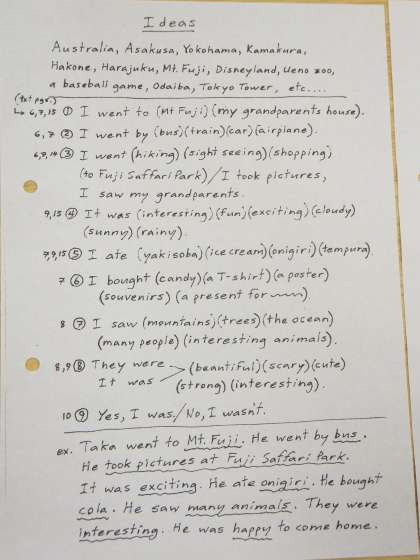 Ideas
Australia, Asakusa, Yokohama, Kamakura,
Hakone, Harajuku, Mt. Fuji, Disneyland, Ueno zoo,
a baseball game, Odaiba, Tokyo Tower, etc....
(txt pgs.)
6, 7, 15 ① I went to (Mt Fuji) (my grandparents house).
6, 7 ② I went by (bus) (train) (car) (airplane).
6, 7, 14 ③ I went (hiking) (sight seeing) (shopping)
(to Fuji Saffari Park) / I took pictures,
I saw my grandparents.
9, 15 ④ It was (interesting) (fun) (exciting) (cloudy)
(sunny) (rainy).
7, 9, 15 ⑤ I ate (yakisoba) (ice cream) (onigiri) (tempura)
7 ⑥ I bought (candy) (a T-shirt) (a poster)
(souvenirs) (a present for
8 ⑦ I saw (mountains) (trees) (the ocean)
(many people) (interesting animals).
8, 9 ⑧ They were (beautiful) (scary) (cute)
It was (strong) (interesting).
10 ⑨ Yes, I was. / No, I wasn't.
ex. Taka went to Mt. Fuji. He went by bus.
He took pictures at Fuji Saffari Park.
It was exciting. He ate onigiri. He bought
cola. He saw many animals. They were
interesting. He was happy to come home.